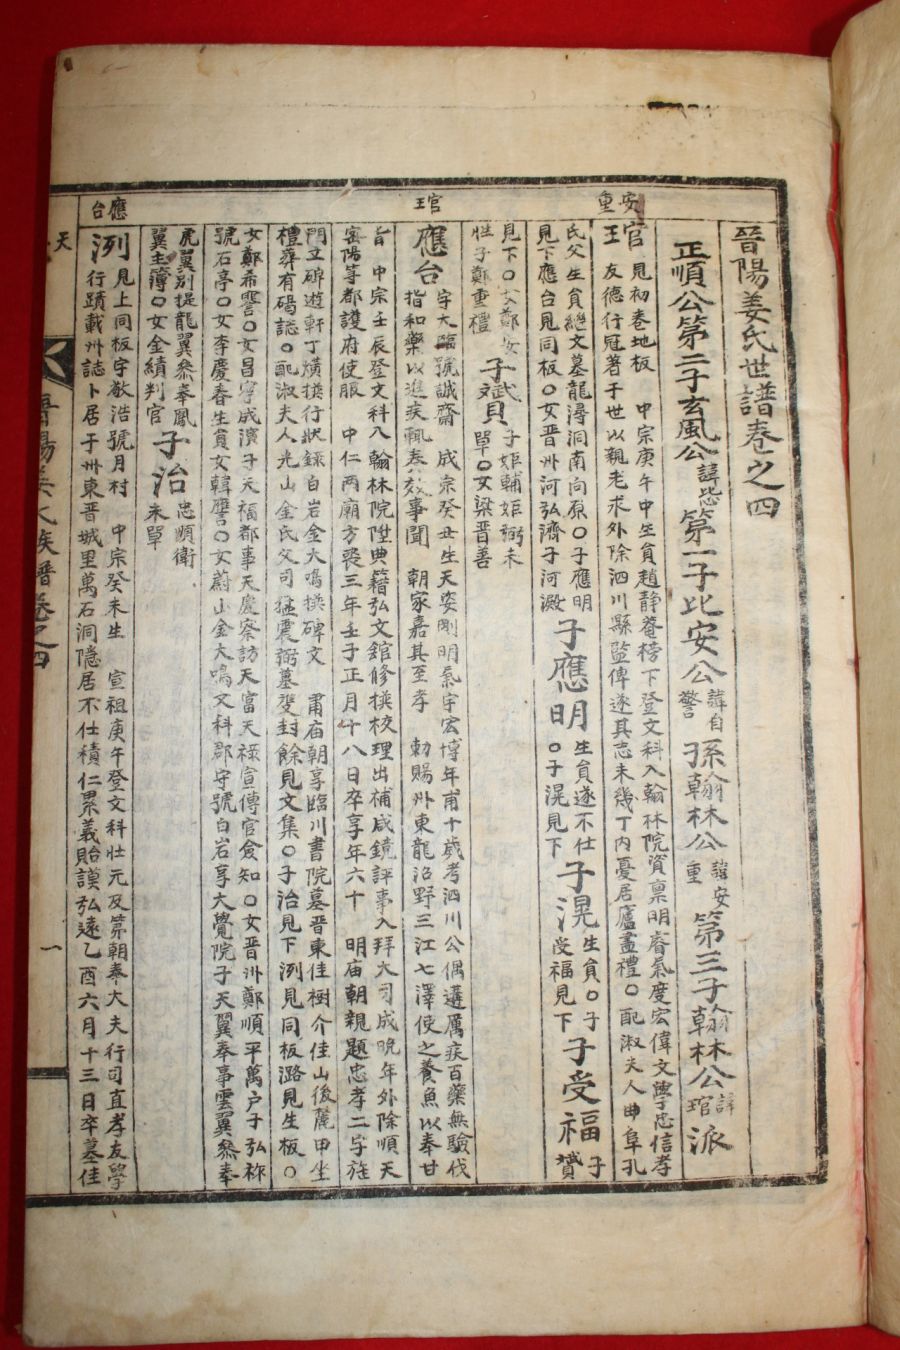 安重
官王
應台
晉陽姜氏世譜卷之四
正順公第二子玄風公諱第一子比安公諱自警孫翰林公諱安重第三子翰林公諱琯派
琯見初卷地板 中宗庚午中生員趙静菴榜下登文科入翰林院資禀明睿氣度宏偉文學忠信孝
友德行冠著于世以親老求外除泗川縣監俾遂其志未幾丁内憂居廬盡禮○配淑夫人曲阜孔
氏父生員繼文墓龍潯洞南向原○子應明
見下應台見同板○女晋州河弘濟子河澱
子應明生員遂不仕○子滉見下
子滉生員○子受福見下
子受福子贇
見下○女鄭
姓子鄭重禮
子贇子姖輔姖弼未單○女梁晋善
應台字大臨號誠齋 成宗癸丑生天姿剛明氣宇宏博年甫十歲考泗川公偶遘厲疾百藥無驗伐
指和藥以進疾輒奏效事聞 朝家嘉其至孝 勅賜州東龍沼野三江七澤使之養魚以奉甘
旨 中宗壬辰登文科入翰林院陞典籍弘文舘修撰校理出補咸鏡評事入拜大司成晩年外除順天
密陽等都護府使服 中仁兩廟方喪三年壬子正月十八日卒享年六十 明庙朝親題忠孝二字旌
門立碑遊軒丁熿撰行狀錄白岩金大鳴撰碑文 肅庙朝享臨川書院墓晋東佳樹介佳山後麓甲坐
禮葬有碣誌○配淑夫人光山金氏父司猛震弼墓雙封餘見文集○子治見下洌見同板潞見生板○
女鄭希○女昌寧成濱子天福都事天慶察訪天富天祿宣傳官僉知○女晋州鄭順平萬户子弘祢
號石亭○女李慶春生員女韓○女蔚山金大鳴文科郡守號白岩享大覺院子天翼奉事雲翼叅奉
虎翼别提龍翼叅奉鳳
翼主簿○女金績判官
子治忠順衛未單
洌見上同板字敬浩號月村 中宗癸未生 宣祖庚午登文科壯元及第朝奉大夫行司直孝友學
行蹟載州誌卜居于州東晋城里萬石洞隱居不仕積仁累義貽謨弘遠乙酉六月十三日卒墓佳
天
晋陽姜氏族譜卷之四
一